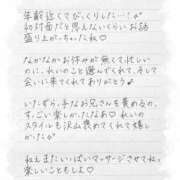 年齢近くてびっくりした…!💕
初対面だと思えないくらいお話
盛り上がっちゃったね♡
なかなかお休みが無くて忙しい
のに、れいのこと選んでくれて、そして
会いに来てくれてありがとう♪
いたずら上手なお兄さんを責めるの、
すごい楽しかったなあ♡ れいの
スタイルも沢山褒めてくれて嬉し
かったが
私もまたいっぱいマッサージさせてね♪
楽しいこともしよ♡